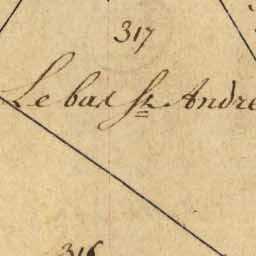 317
Le bas St. André
316